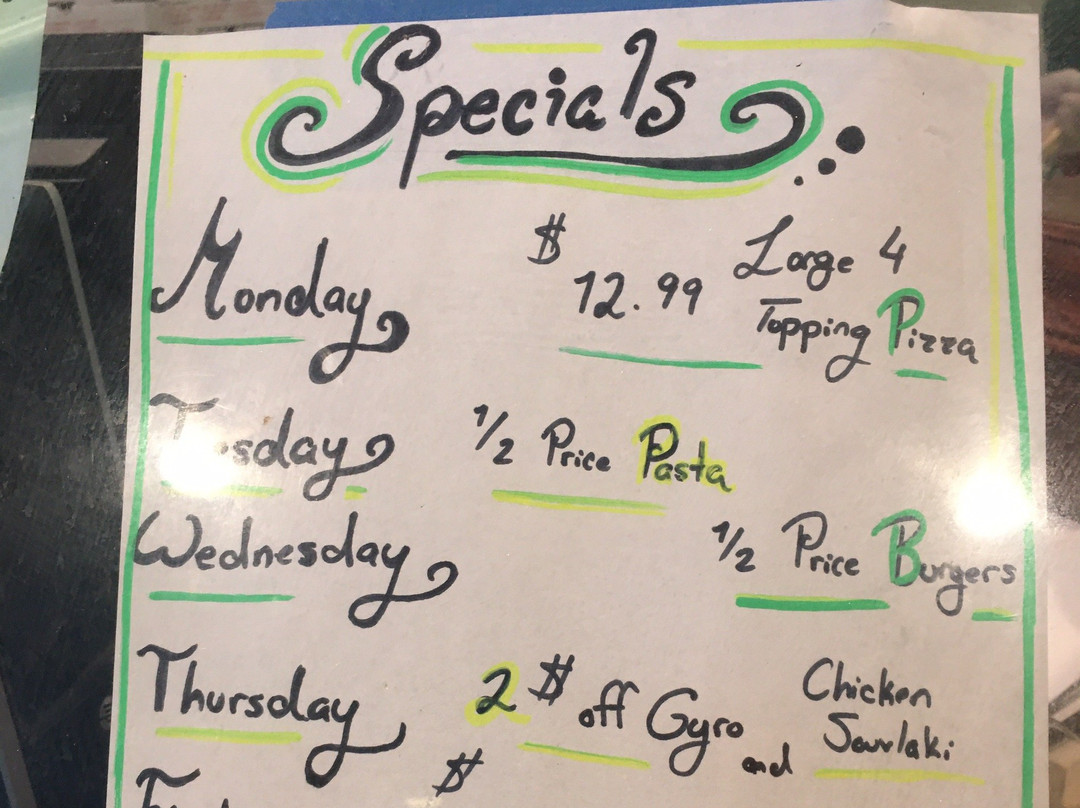 Specials
Monday $12.99 Large 4 Topping Pizza
Tuesday 1/2 Price Pasta
Wednesday 1/2 Price Burgers
Thursday 2$ off Gyro and Chicken Souvlaki
$